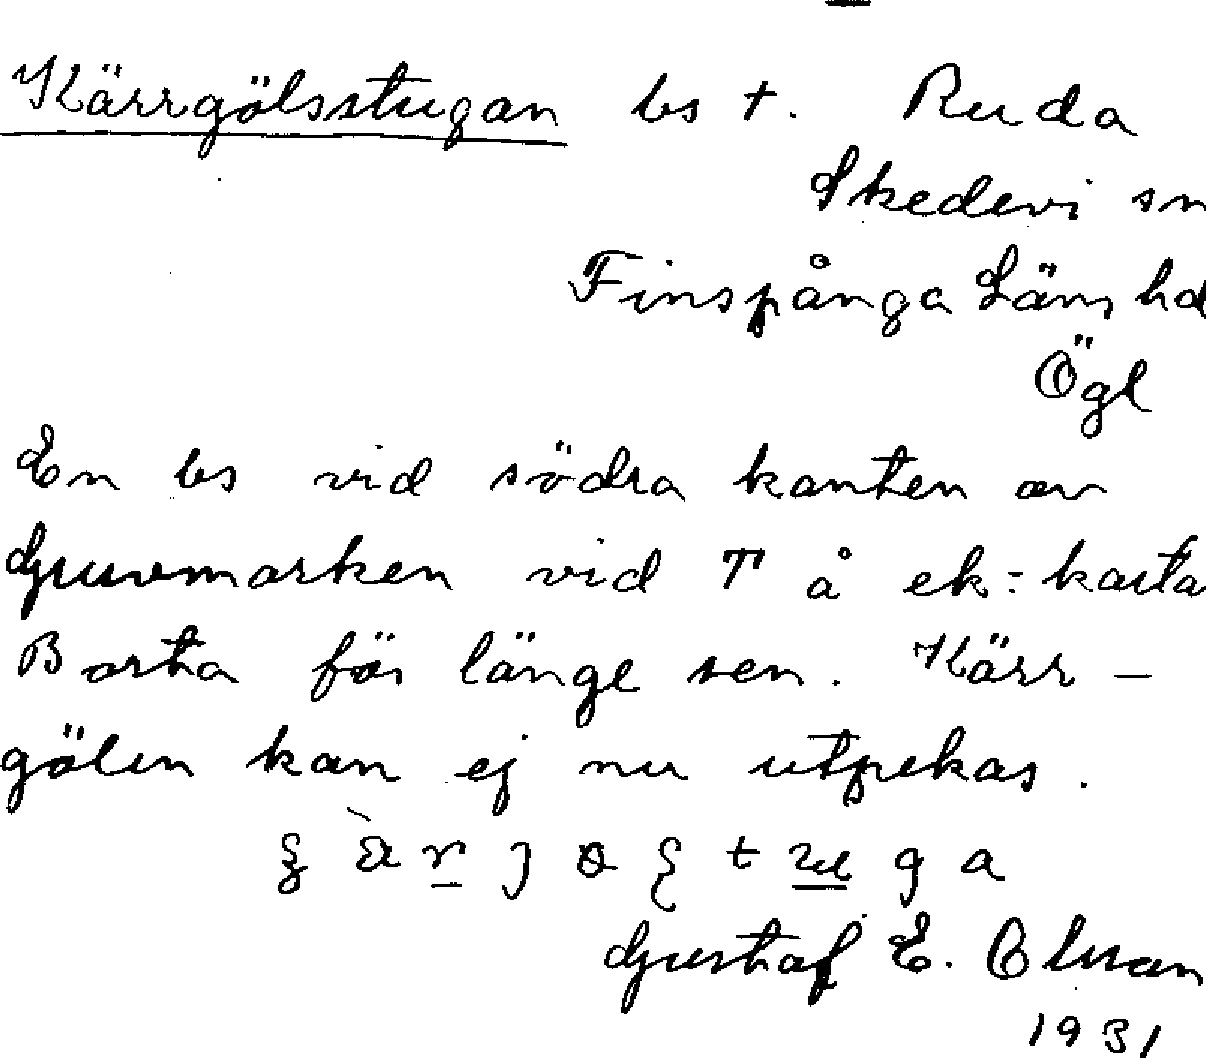 Kärrgölsstugan bs t. Ruda
Skedevi sn
Finspånga Läns hd
Ögl
En bs vid södra kanten av
Gruvmarken vid T å ek-karta
Borta för länge sen. Kärr-
gölen kan ej nu utpekas.
Gustaf E. Olsson
1931